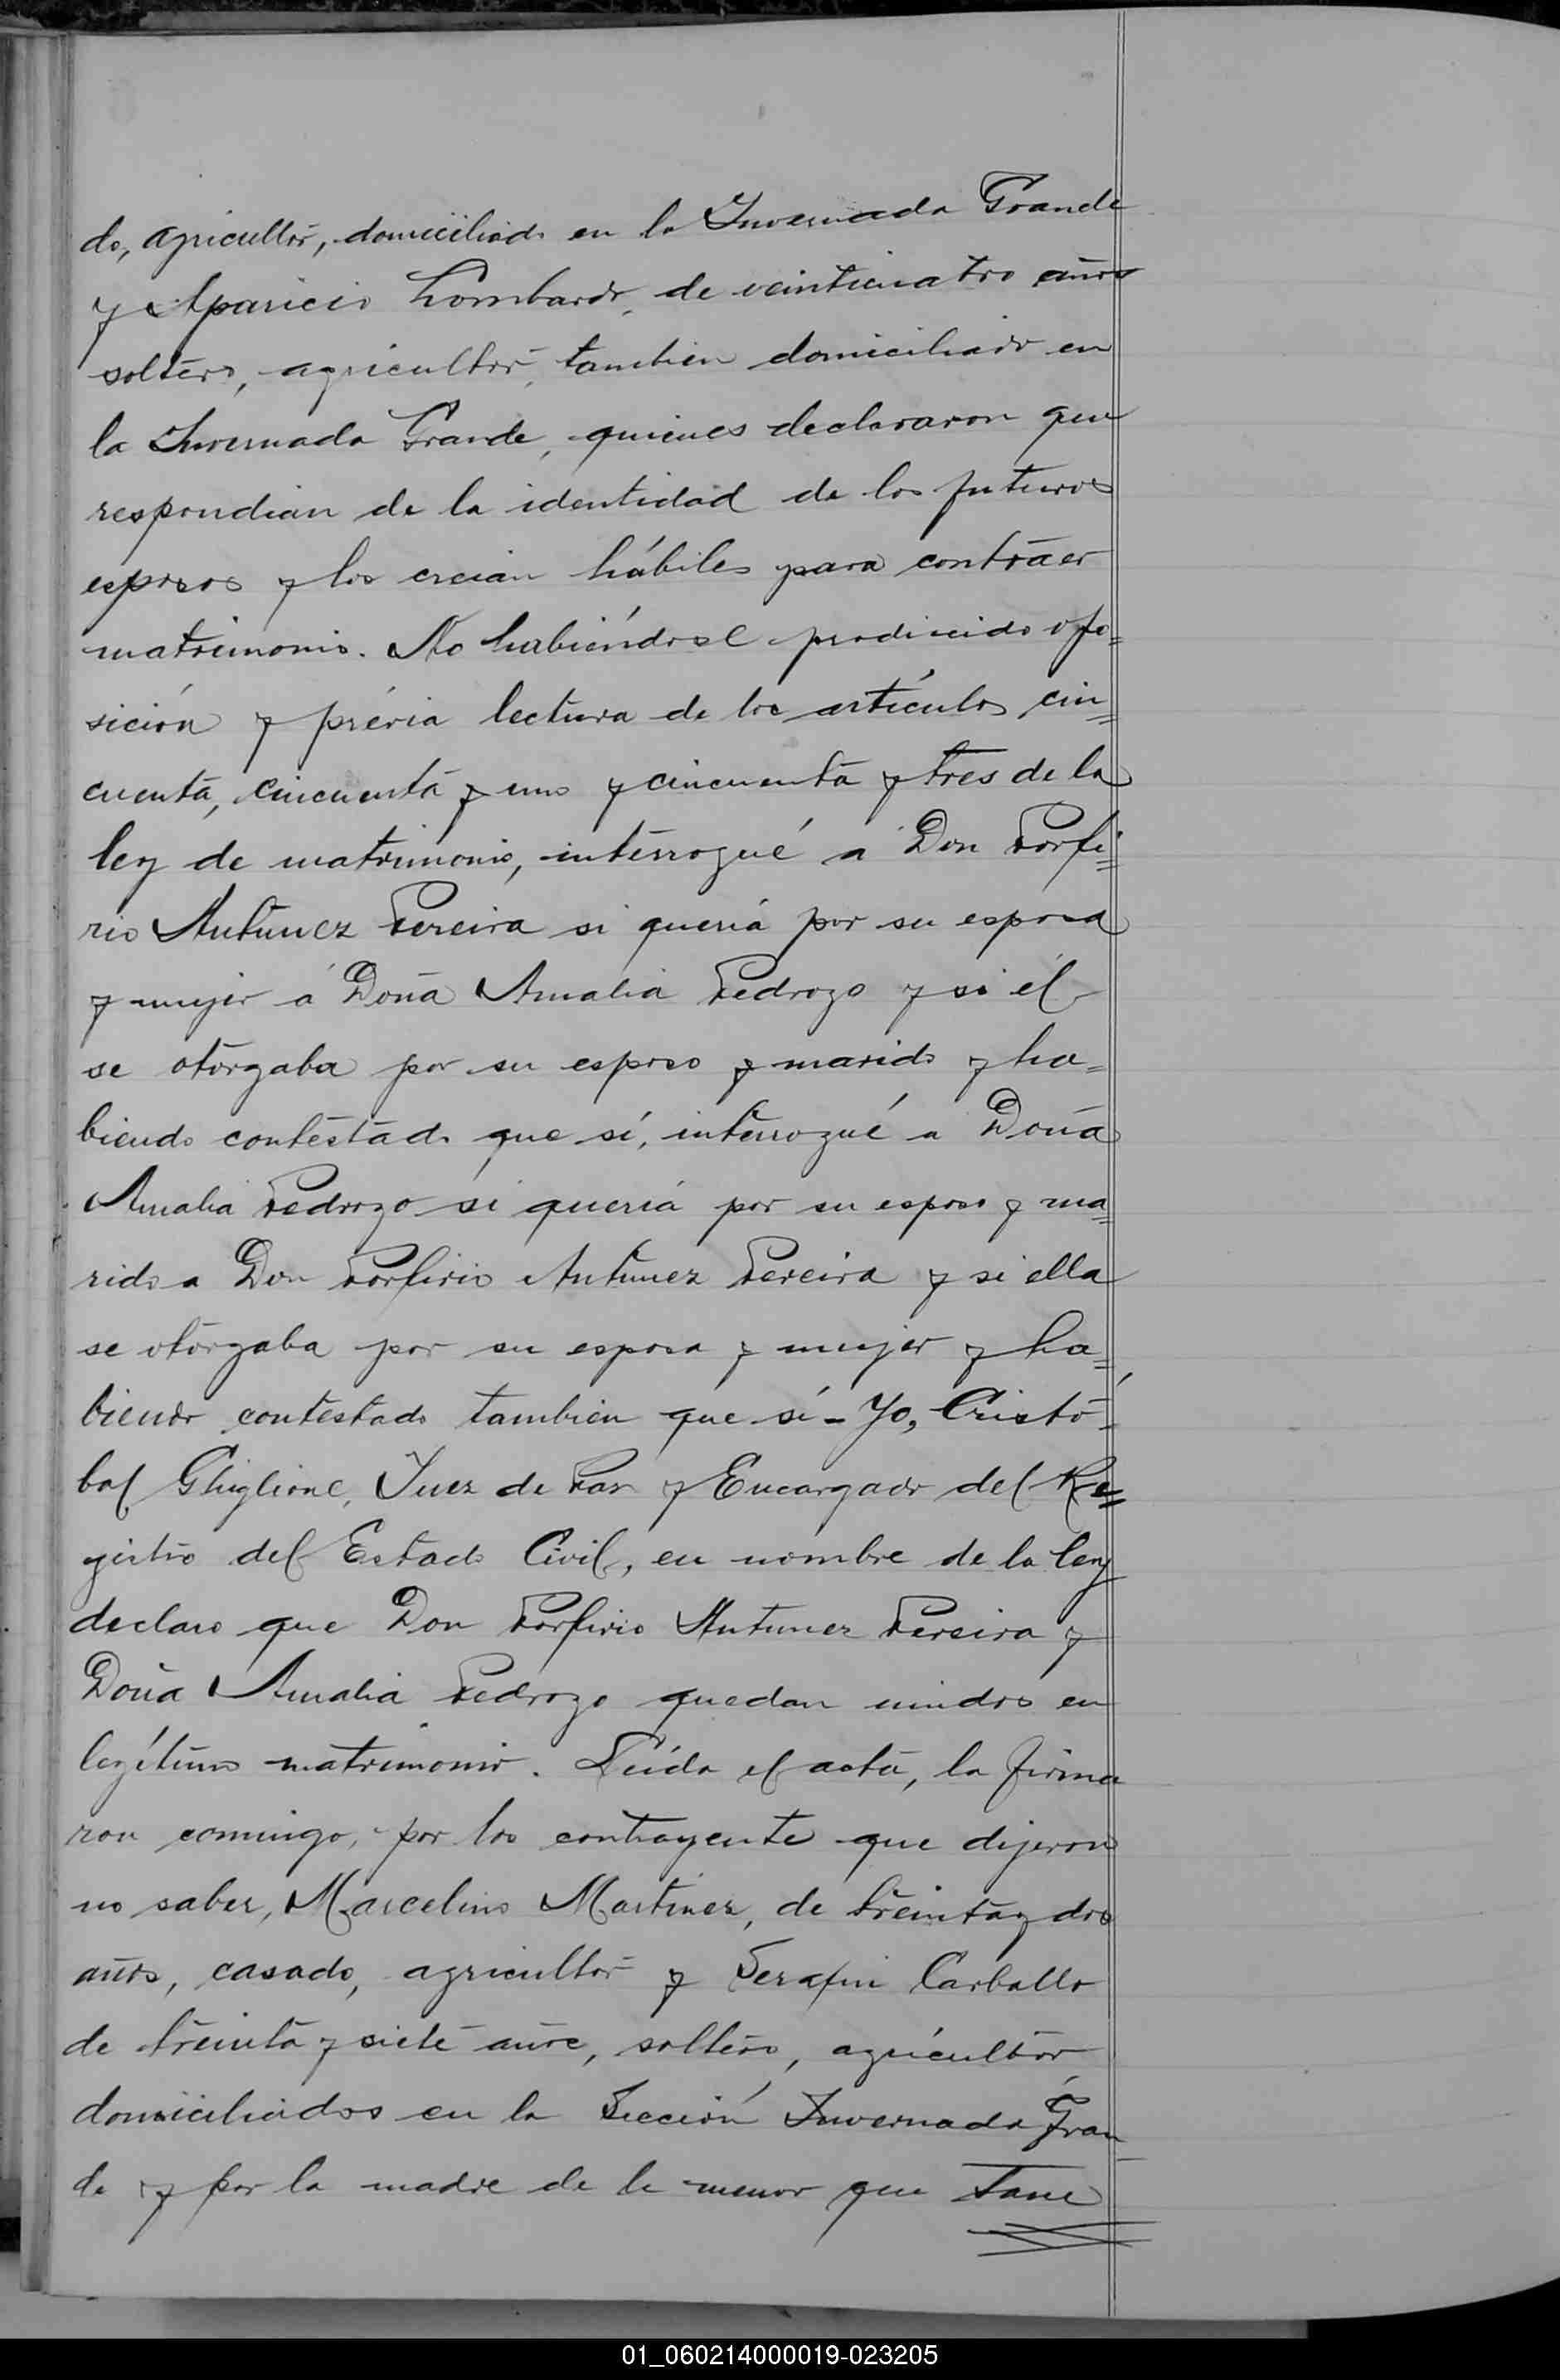 do, agricultor, domiciliado en la Invernada Grande
y Aparicio Lombardo, de veinticuatro años
soltero, agricultor, tambien domiciliado en
la Invernada Grande, quienes declararon que
respondian de la identidad de los futuros
esposos y los creian hábiles para contraer
matrimonio. No habiéndose producido opo=
sición y prévia lectura de los artículos cin=
cuenta, cincuenta y uno y cincuenta y tres de la
ley de matrimonio, interrogué a Don Porfi=
rio Antunez Pereira si queria por su esposa
y mujer a Doña Amalia Pedrozo y si él
se otorgaba por su esposo y marido y ha=
biendo contestado que sí, interrogué a Doña
Amalia Pedrozo si queria por su esposo y ma=
rido a Don Porfirio Antunez Pereira y si ella
se otorgaba por su esposa y mujer y ha=
biendo contestado tambien que sí - Yo, Cristó=
bal Ghiglione, Juez de Paz y Encargado del Re=
gistro del Estado Civil, en nombre de la ley
declaro que Don Porfirio Antunez Pereira y
Doña Amalia Pedrozo quedan unidos en
legítimo matrimonio. Leída el acta, la firma
ron comingo, por los contrayente que dijeron
no saber, Marcelino Martinez, de treinta y dos
años, casado, agricultor y Serafin Carballo
de treinta y siete años, soltero, agricultor
domiciliados en la Sección Invernada Gran
de y por la madre de la menor que tam
01_060214000019-023205